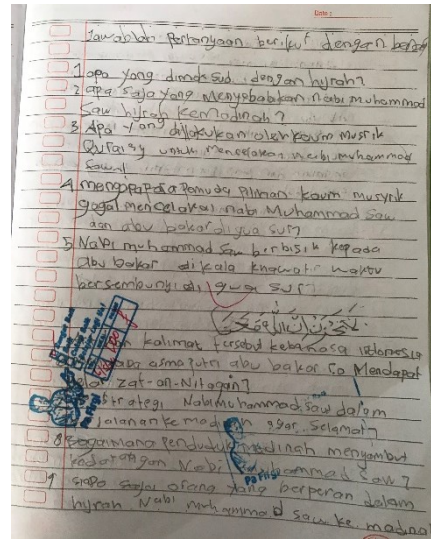 Date :
Jawablah Pertanyaan berikut dengan benar
1 apa yang dimaksud dengan hijrah?
2 apa saja yang Menyebabkan nabi muhammad
Saw hijrah kemadinah?
3 Apa yang dilakukan oleh kaum musrik
Quraisy untuk mencelakai nabi muhammad
Saw
4 mengapa para Pemuda Pilihan kaum musyrik
gagal mencelakai nabi Muhammad Saw
dan abu bakar di gua sur?
5 Nabi muhammad Saw berbisik kepada
abu bakar dikala khawatir waktu
bersembunyi di gua sur
لاتحزن ان الله معنا
kalimat tersebut kebahasa indonesia
asma Putri abu bakar ra Mendapat
zat-an-Nitaqain?
strategi Nabi Muhammad Saw dalam
kemadinah agar Selamat?
8 Bagaimana penduduk madinah menyambut
kedatangan Nabi Muhammad Saw?
9 siapa saja orang yang berperan dalam
hijrah Nabi muhammad saw ke madinah